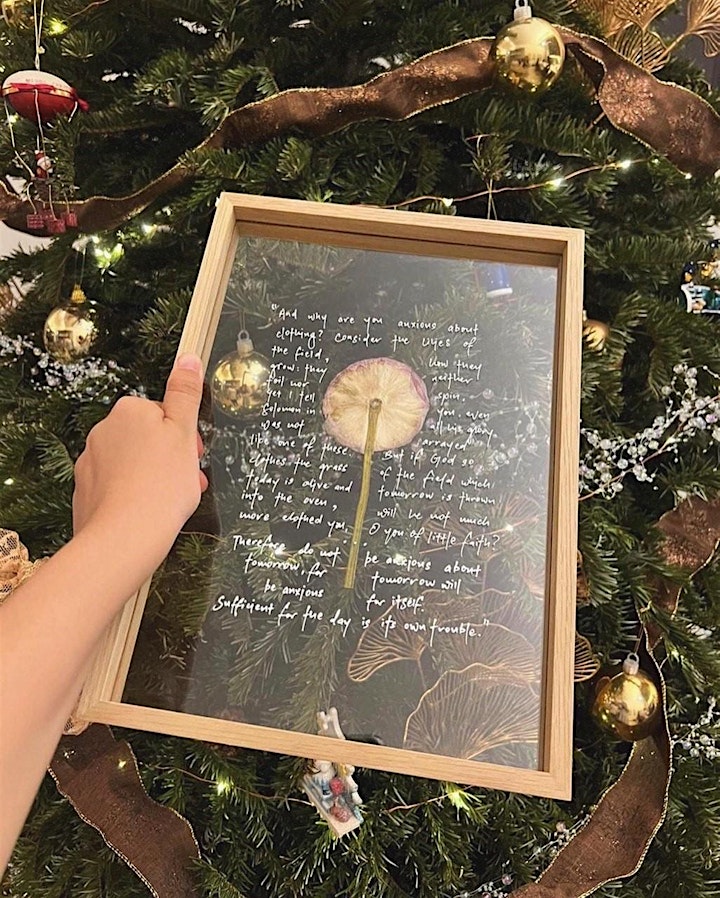 "And why are you anxious about
clothing? Consider the lilies of
the field, how they
grow: they neither
toil nor spin.
yet I tell you, even
Solomon in all his glory
was not arrayed
like one of these. But if God so
clothes the grass of the field which
today is alive and tomorrow is thrown
into the oven, will he not much
more clothed you, O you of little faith?
Therefore do not be anxious about
tomorrow, for tomorrow will
be anxious for itself.
Sufficient for the day is its own trouble."